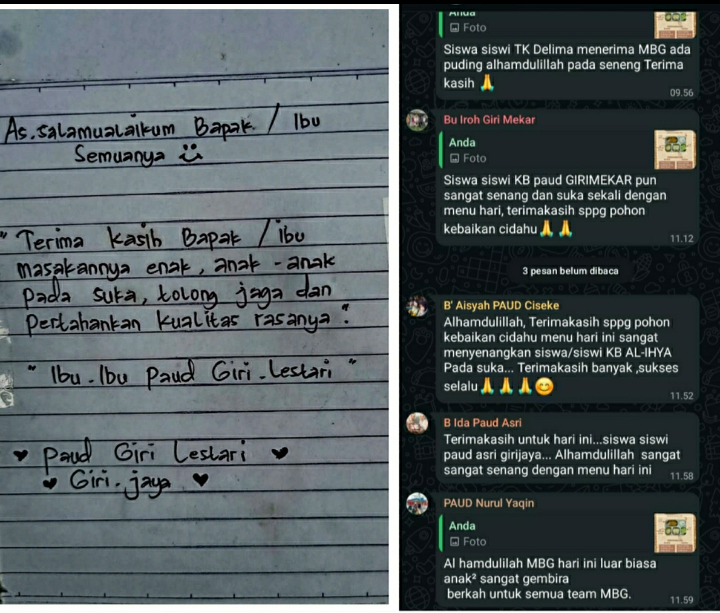 As.salamualaikum Bapak / Ibu
Semuanya
" Terima kasih Bapak / ibu
masakannya enak, anak - anak
pada suka, tolong jaga dan
Pertahankan kualitas rasanya ".
" Ibu - Ibu Paud Giri - Lestari "
♥ Paud Giri Lestari ♥
♥ Giri - jaya ♥
Anda
Foto
Siswa siswi TK Delima menerima MBG ada
puding alhamdulillah pada seneng Terima
kasih 🙏
09.56
Bu Iroh Giri Mekar
Anda
Foto
Siswa siswi KB paud GIRIMEKAR pun
sangat senang dan suka sekali dengan
menu hari, terimakasih sppg pohon
kebaikan cidahu🙏 🙏
11.12
3 pesan belum dibaca
B' Aisyah PAUD Ciseke
Alhamdulillah, Terimakasih sppg pohon
kebaikan cidahu menu hari ini sangat
menyenangkan siswa/siswi KB AL-IHYA
Pada suka... Terimakasih banyak ,sukses
selalu🙏🙏🙏😊
11.52
B Ida Paud Asri
Terimakasih untuk hari ini...siswa siswi
paud asri girijaya... Alhamdulillah sangat
sangat senang dengan menu hari ini
11.58
PAUD Nurul Yaqin
Anda
Foto
Al hamdulilah MBG hari ini luar biasa
anak² sangat gembira
berkah untuk semua team MBG.
11.59